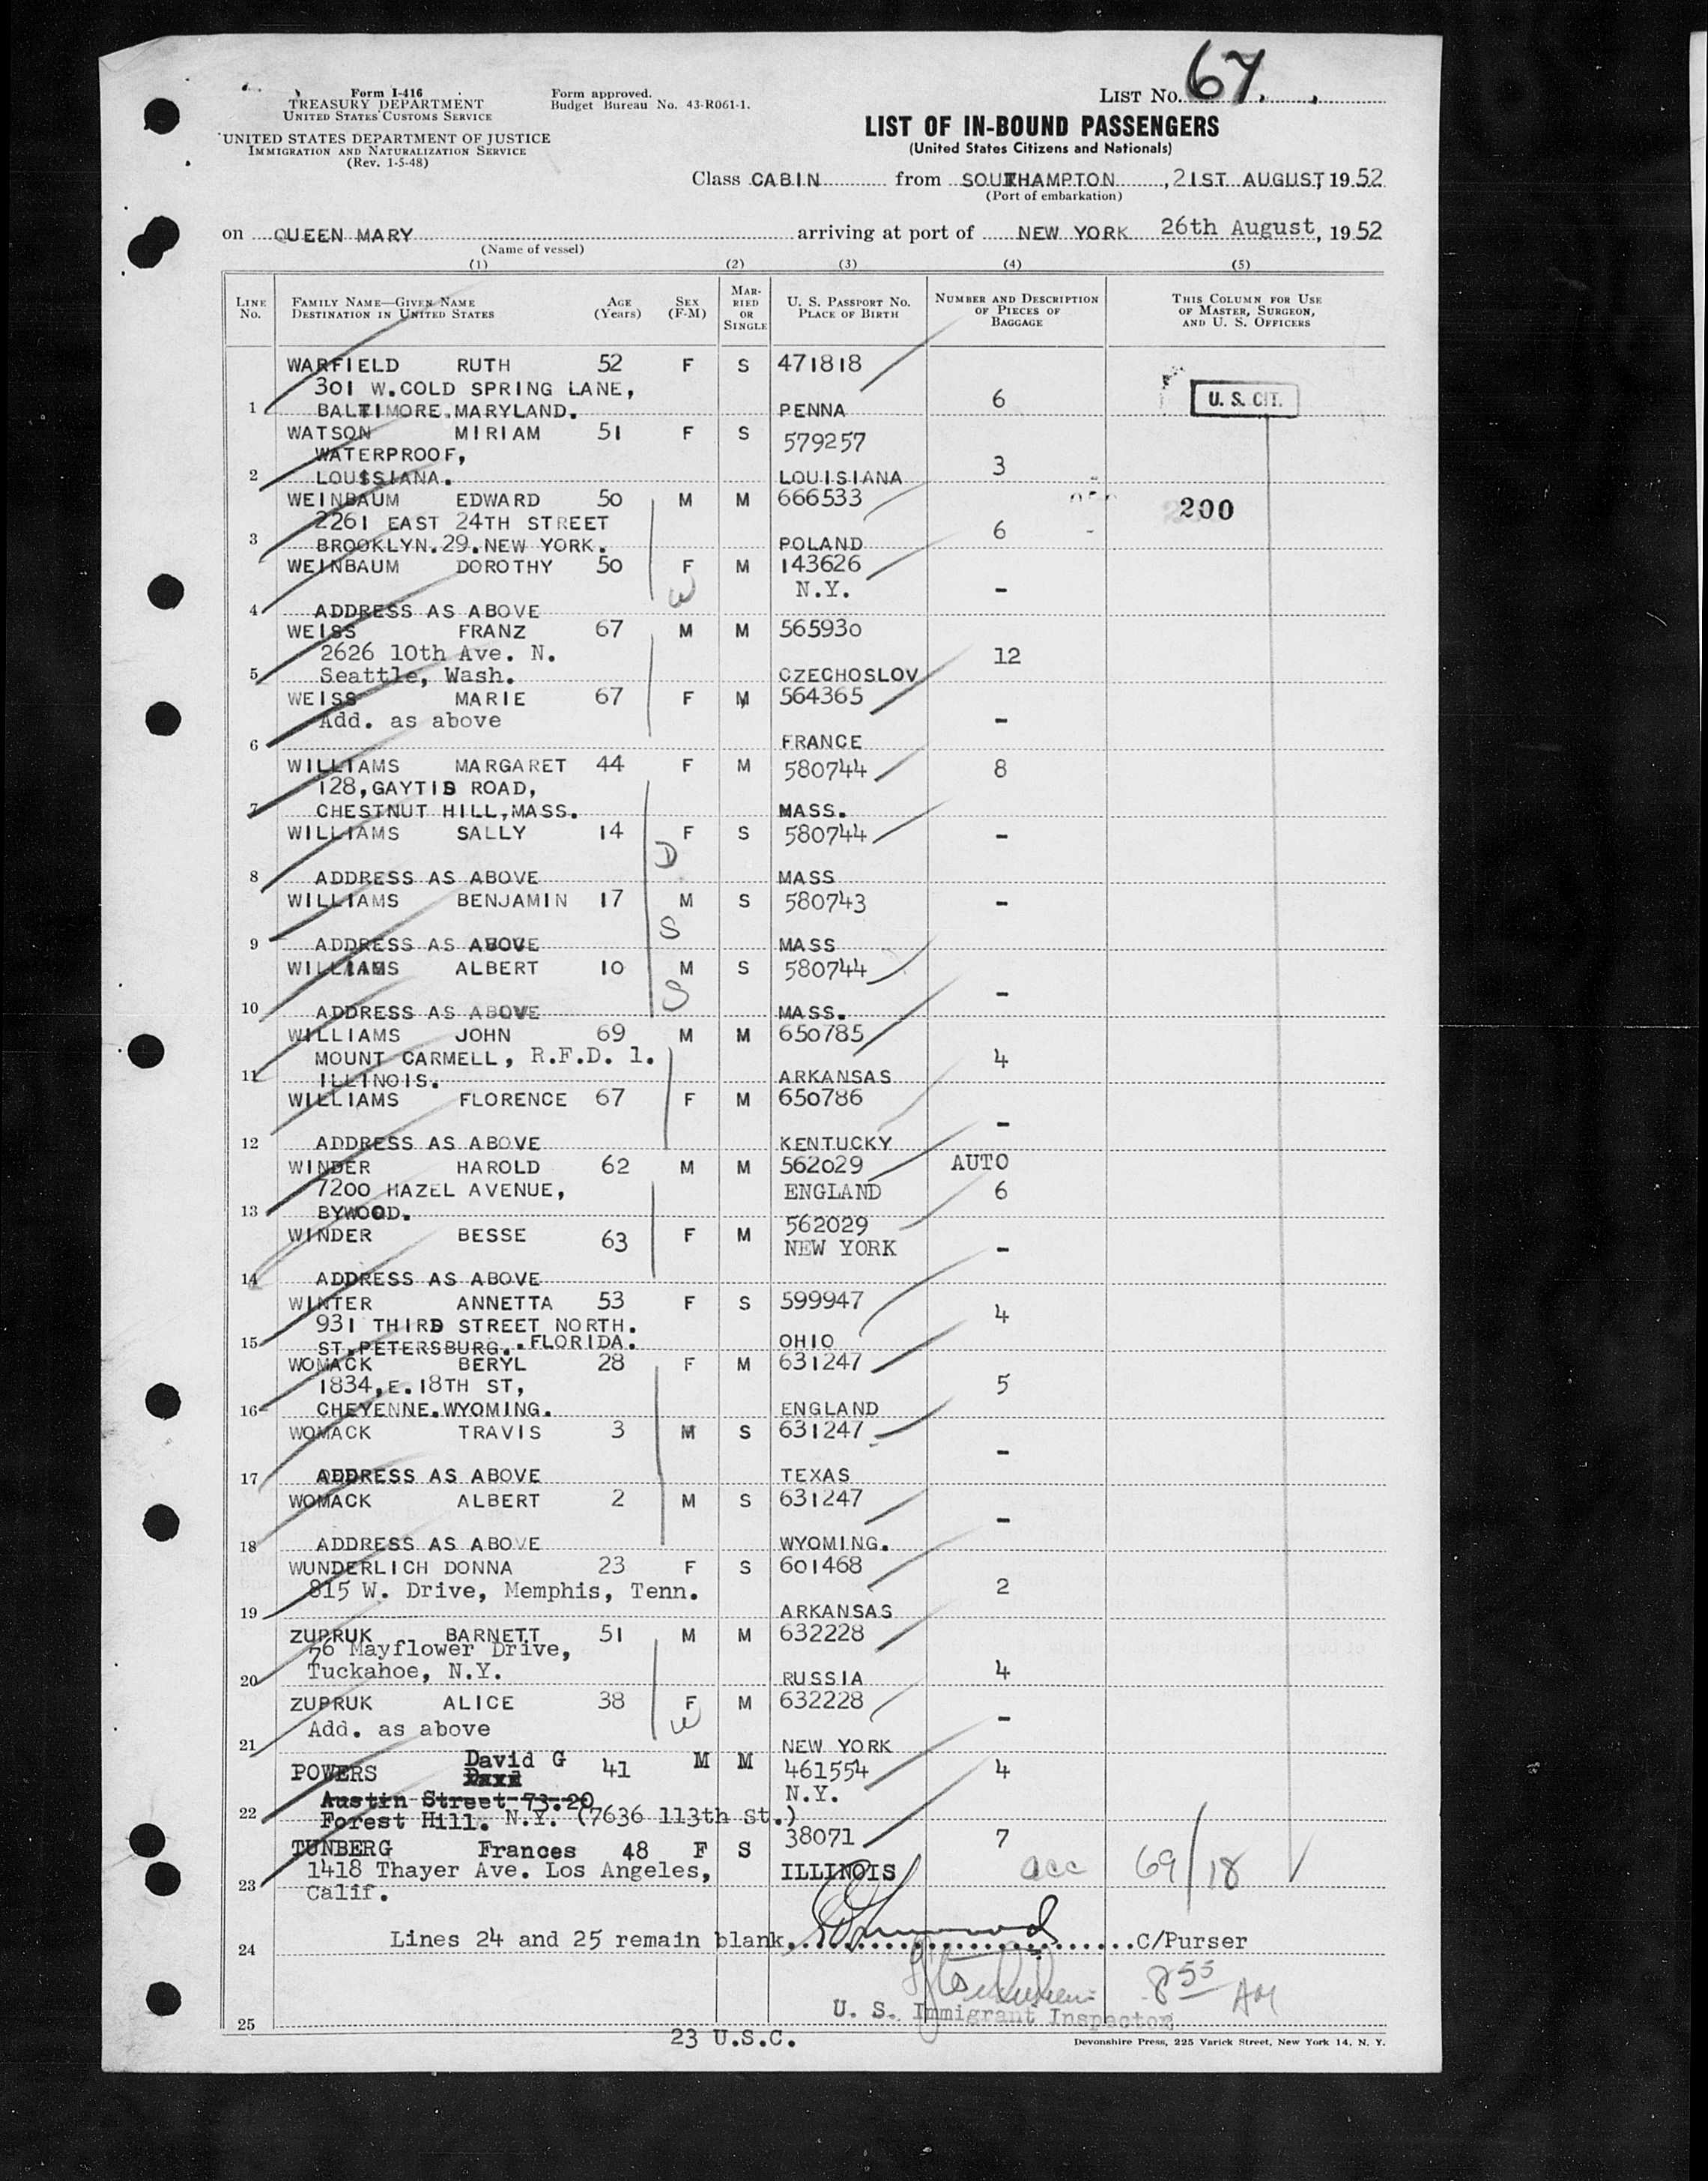 Form I-416
TREASURY DEPARTMENT
UNITED STATES CUSTOMS SERVICE
UNITED STATES DEPARTMENT OF JUSTICE
IMMIGRATION AND NATURALIZATION SERVICE
(Rev. 1-5-48)
Form approved.
Budget Bureau No. 43-R061-1.
LIST No. 67
LIST OF IN-BOUND PASSENGERS
(United States Citizens and Nationals)
Class CABIN from SOUTHAMPTON, 21ST AUGUST, 1952
(Port of embarkation)
on QUEEN MARY arriving at port of NEW YORK 26th August, 1952
(Name of vessel)
(1) (2) (3) (4) (5)
LINE No. FAMILY NAME—GIVEN NAME DESTINATION IN UNITED STATES AGE (Years) SEX (F-M) MARRIED OR SINGLE U. S. PASSPORT No. PLACE OF BIRTH NUMBER AND DESCRIPTION OF PIECES OF BAGGAGE THIS COLUMN FOR USE OF MASTER, SURGEON, AND U. S. OFFICERS
WARFIELD RUTH 52 F S 471818
301 W.COLD SPRING LANE,
1 BALTIMORE.MARYLAND. PENNA 6 U. S. CIT.
WATSON MIRIAM 51 F S 579257
WATERPROOF,
2 LOUISIANA. LOUISIANA 3
WEINBAUM EDWARD 50 M M 666533 200
2261 EAST 24TH STREET
3 BROOKLYN.29.NEW YORK. POLAND 6
WEINBAUM DOROTHY 50 F M 143626
W N.Y. -
4 ADDRESS AS ABOVE
WEISS FRANZ 67 M M 565930
2626 10th Ave. N. 12
5 Seattle, Wash. CZECHOSLOV
WEISS MARIE 67 F M 564365
Add. as above -
6 FRANCE
WILLIAMS MARGARET 44 F M 580744 8
128,GAYTIS ROAD,
7 CHESTNUT HILL,MASS. MASS.
WILLIAMS SALLY 14 F S 580744 -
D
8 ADDRESS AS ABOVE MASS
WILLIAMS BENJAMIN 17 M S 580743 -
S
9 ADDRESS AS ABOVE MASS
WILLIAMS ALBERT 10 M S 580744
S -
10 ADDRESS AS ABOVE MASS.
WILLIAMS JOHN 69 M M 650785
MOUNT CARMELL, R.F.D. 1. 4
11 ILLINOIS. ARKANSAS
WILLIAMS FLORENCE 67 F M 650786
-
12 ADDRESS AS ABOVE KENTUCKY
WINDER HAROLD 62 M M 562029 AUTO
7200 HAZEL AVENUE, ENGLAND 6
13 BYWOOD.
WINDER BESSE 63 F M 562029
NEW YORK -
14 ADDRESS AS ABOVE
WINTER ANNETTA 53 F S 599947
931 THIRD STREET NORTH. 4
15 ST.PETERSBURG..FLORIDA. OHIO
WOMACK BERYL 28 F M 631247
1834,E.18TH ST, 5
16 CHEYENNE.WYOMING. ENGLAND
WOMACK TRAVIS 3 M S 631247
-
17 ADDRESS AS ABOVE TEXAS
WOMACK ALBERT 2 M S 631247
-
18 ADDRESS AS ABOVE WYOMING.
WUNDERLICH DONNA 23 F S 601468
815 W. Drive, Memphis, Tenn. 2
19 ARKANSAS
ZUPRUK BARNETT 51 M M 632228
76 Mayflower Drive,
20 Tuckahoe, N.Y. RUSSIA 4
ZUPRUK ALICE 38 F M 632228
Add. as above W -
21 NEW YORK
POWERS David G 41 M M 461554 4
Austin Street 73.20 N.Y.
22 Forest Hill. N.Y. (7636 113th St.)
TUNBERG Frances 48 F S 38071 7
1418 Thayer Ave. Los Angeles, ILLINOIS acc 69/18
23 Calif.
24 Lines 24 and 25 remain blank. C/Purser
8 55 AM
U. S. Immigrant Inspector
25
23 U.S.C.
Devonshire Press, 225 Varick Street, New York 14, N. Y.